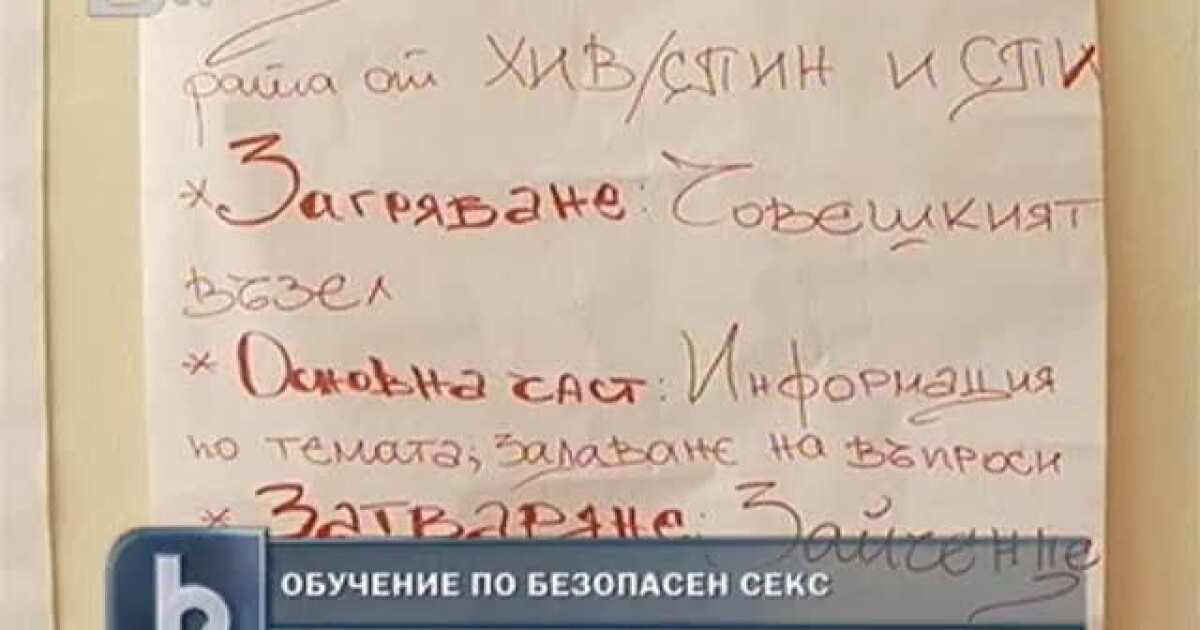 рата от ХИВ/СПИН и СПИ
* Загряване: Човешкият
възел
* Основна част: Информация
по темата; задаване на въпроси
* Затваряне: Зайчение
ОБУЧЕНИЕ ПО БЕЗОПАСЕН СЕКС
b